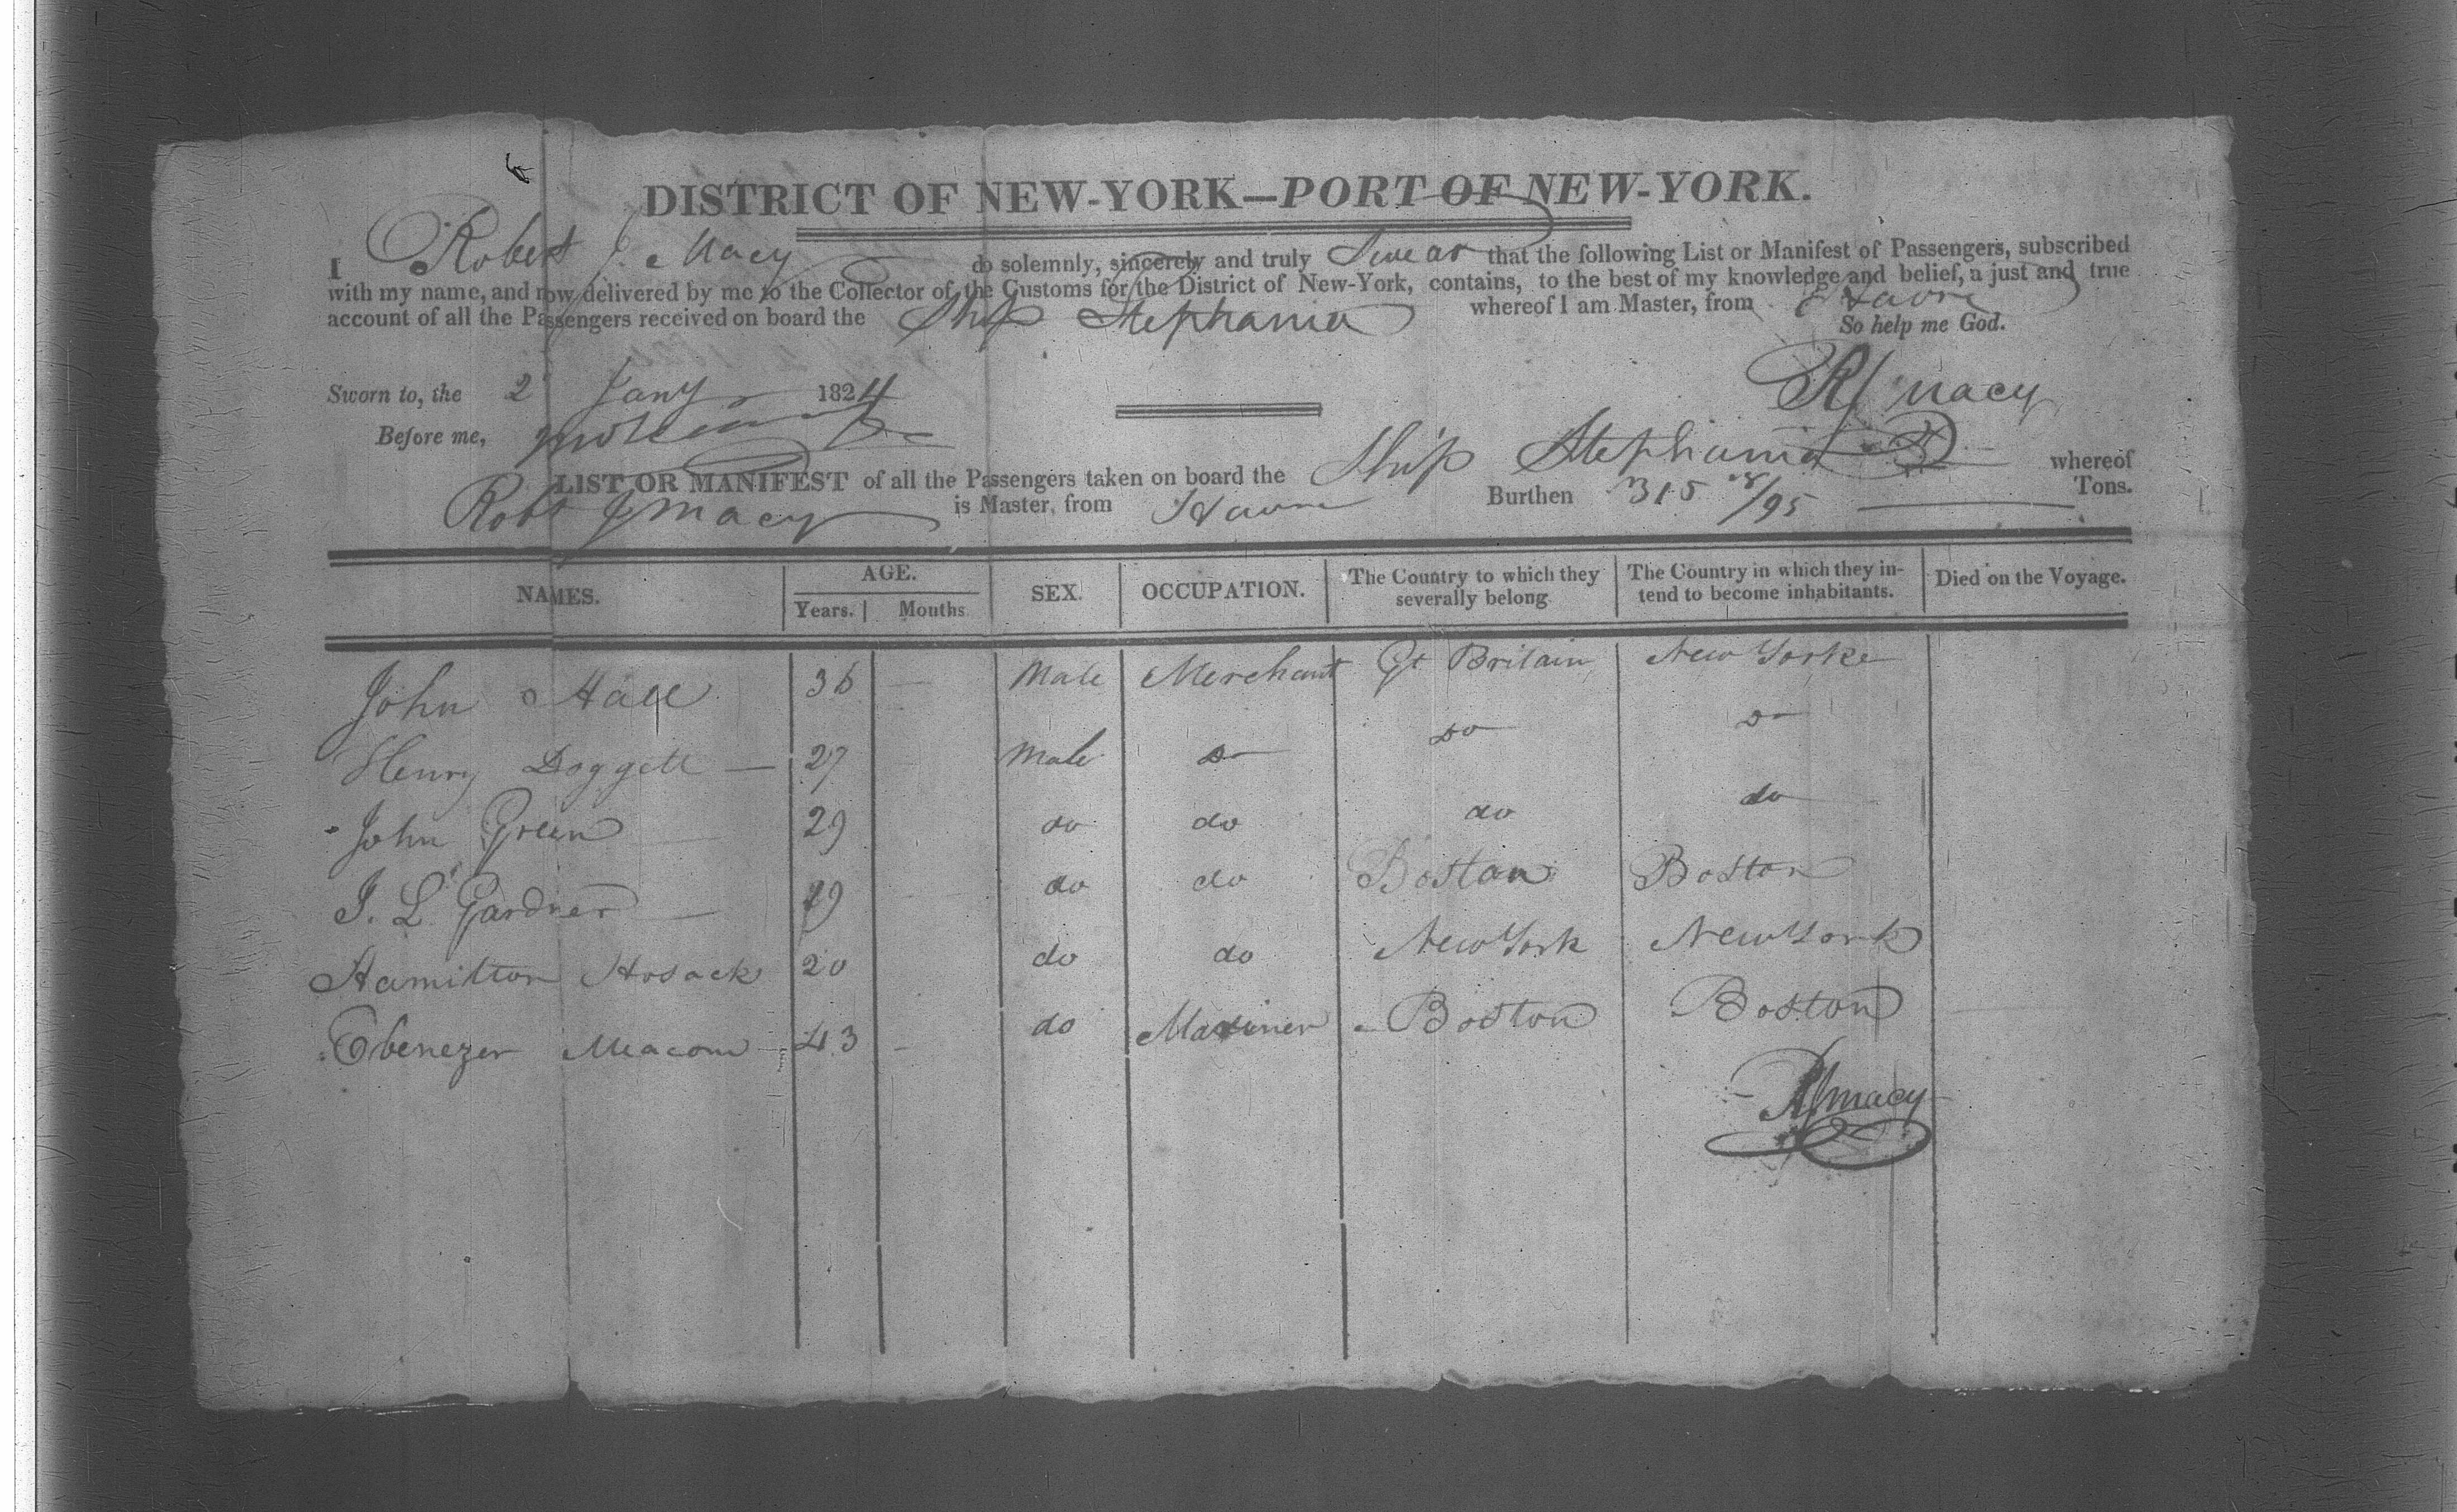 DISTRICT OF NEW-YORK—PORT OF NEW-YORK.
I Robert J. Macy do solemnly, sincerely and truly Swear that the following List or Manifest of Passengers, subscribed
with my name, and now delivered by me to the Collector of the Customs for the District of New-York, contains, to the best of my knowledge and belief, a just and true
account of all the Passengers received on board the Ship Stephania whereof I am Master, from Havre
So help me God.
Sworn to, the 2 Jany 1824
RJ Macy
Before me,
LIST OR MANIFEST of all the Passengers taken on board the Ship Stephania whereof
Robt J Macy is Master, from Havre Burthen 315 /95 Tons.
NAMES. AGE. SEX. OCCUPATION. The Country to which they severally belong The Country in which they intend to become inhabitants. Died on the Voyage.
Years. Mouths
John Hall 36 Male Merchant Gt Britain New Yorke
Henry Doggett 27 Male do do do
John Green 29 do do do do
J. L. Gardner 19 do do Boston Boston
Hamilton Hosack 20 do do New York New York
Ebenezer Meacom 43 do Mariner Boston Boston
RJ Macy